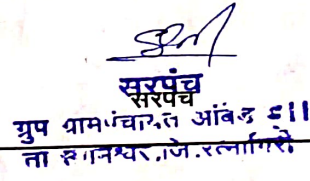 सरपंच
सरपंच
ग्रुप ग्रामपंचायत आंबेड
ता जि.रत्नागिरी